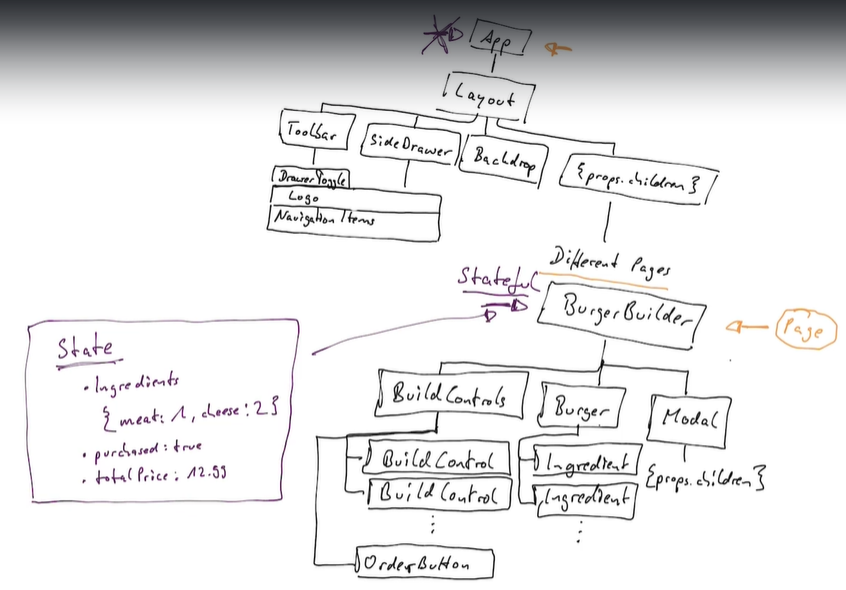 App
Layout
Toolbar
SideDrawer
Backdrop
{props.children}
DrawerToggle
Logo
Navigation Items
Different Pages
Stateful
BurgerBuilder
Page
State
• Ingredients
{meat: 1, cheese: 2}
• purchased: true
• totalPrice: 12.99
Build Controls
Burger
Modal
Build Control
Build Control
Ingredient
Ingredient
{props.children}
OrderButton